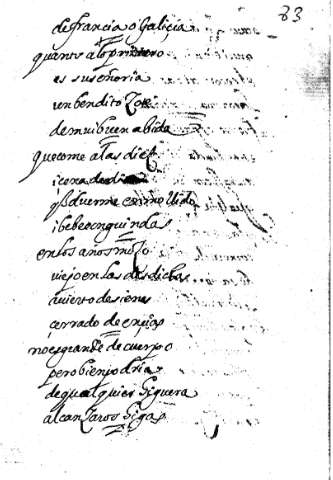 83
de francia o Galiçia
quanto a lo primero
es su señoria
un bendito Zote
de mui buena bida
que come a las diez
i cena de dia
q̃ duerme en mollido
i bebe con guindas
en los años moço
viejo en las desdichas
avierto de sienes
cerrado de encias
no es grande de cuerpo
pero bien podria
de qualquier higuera
alcanzaros higas